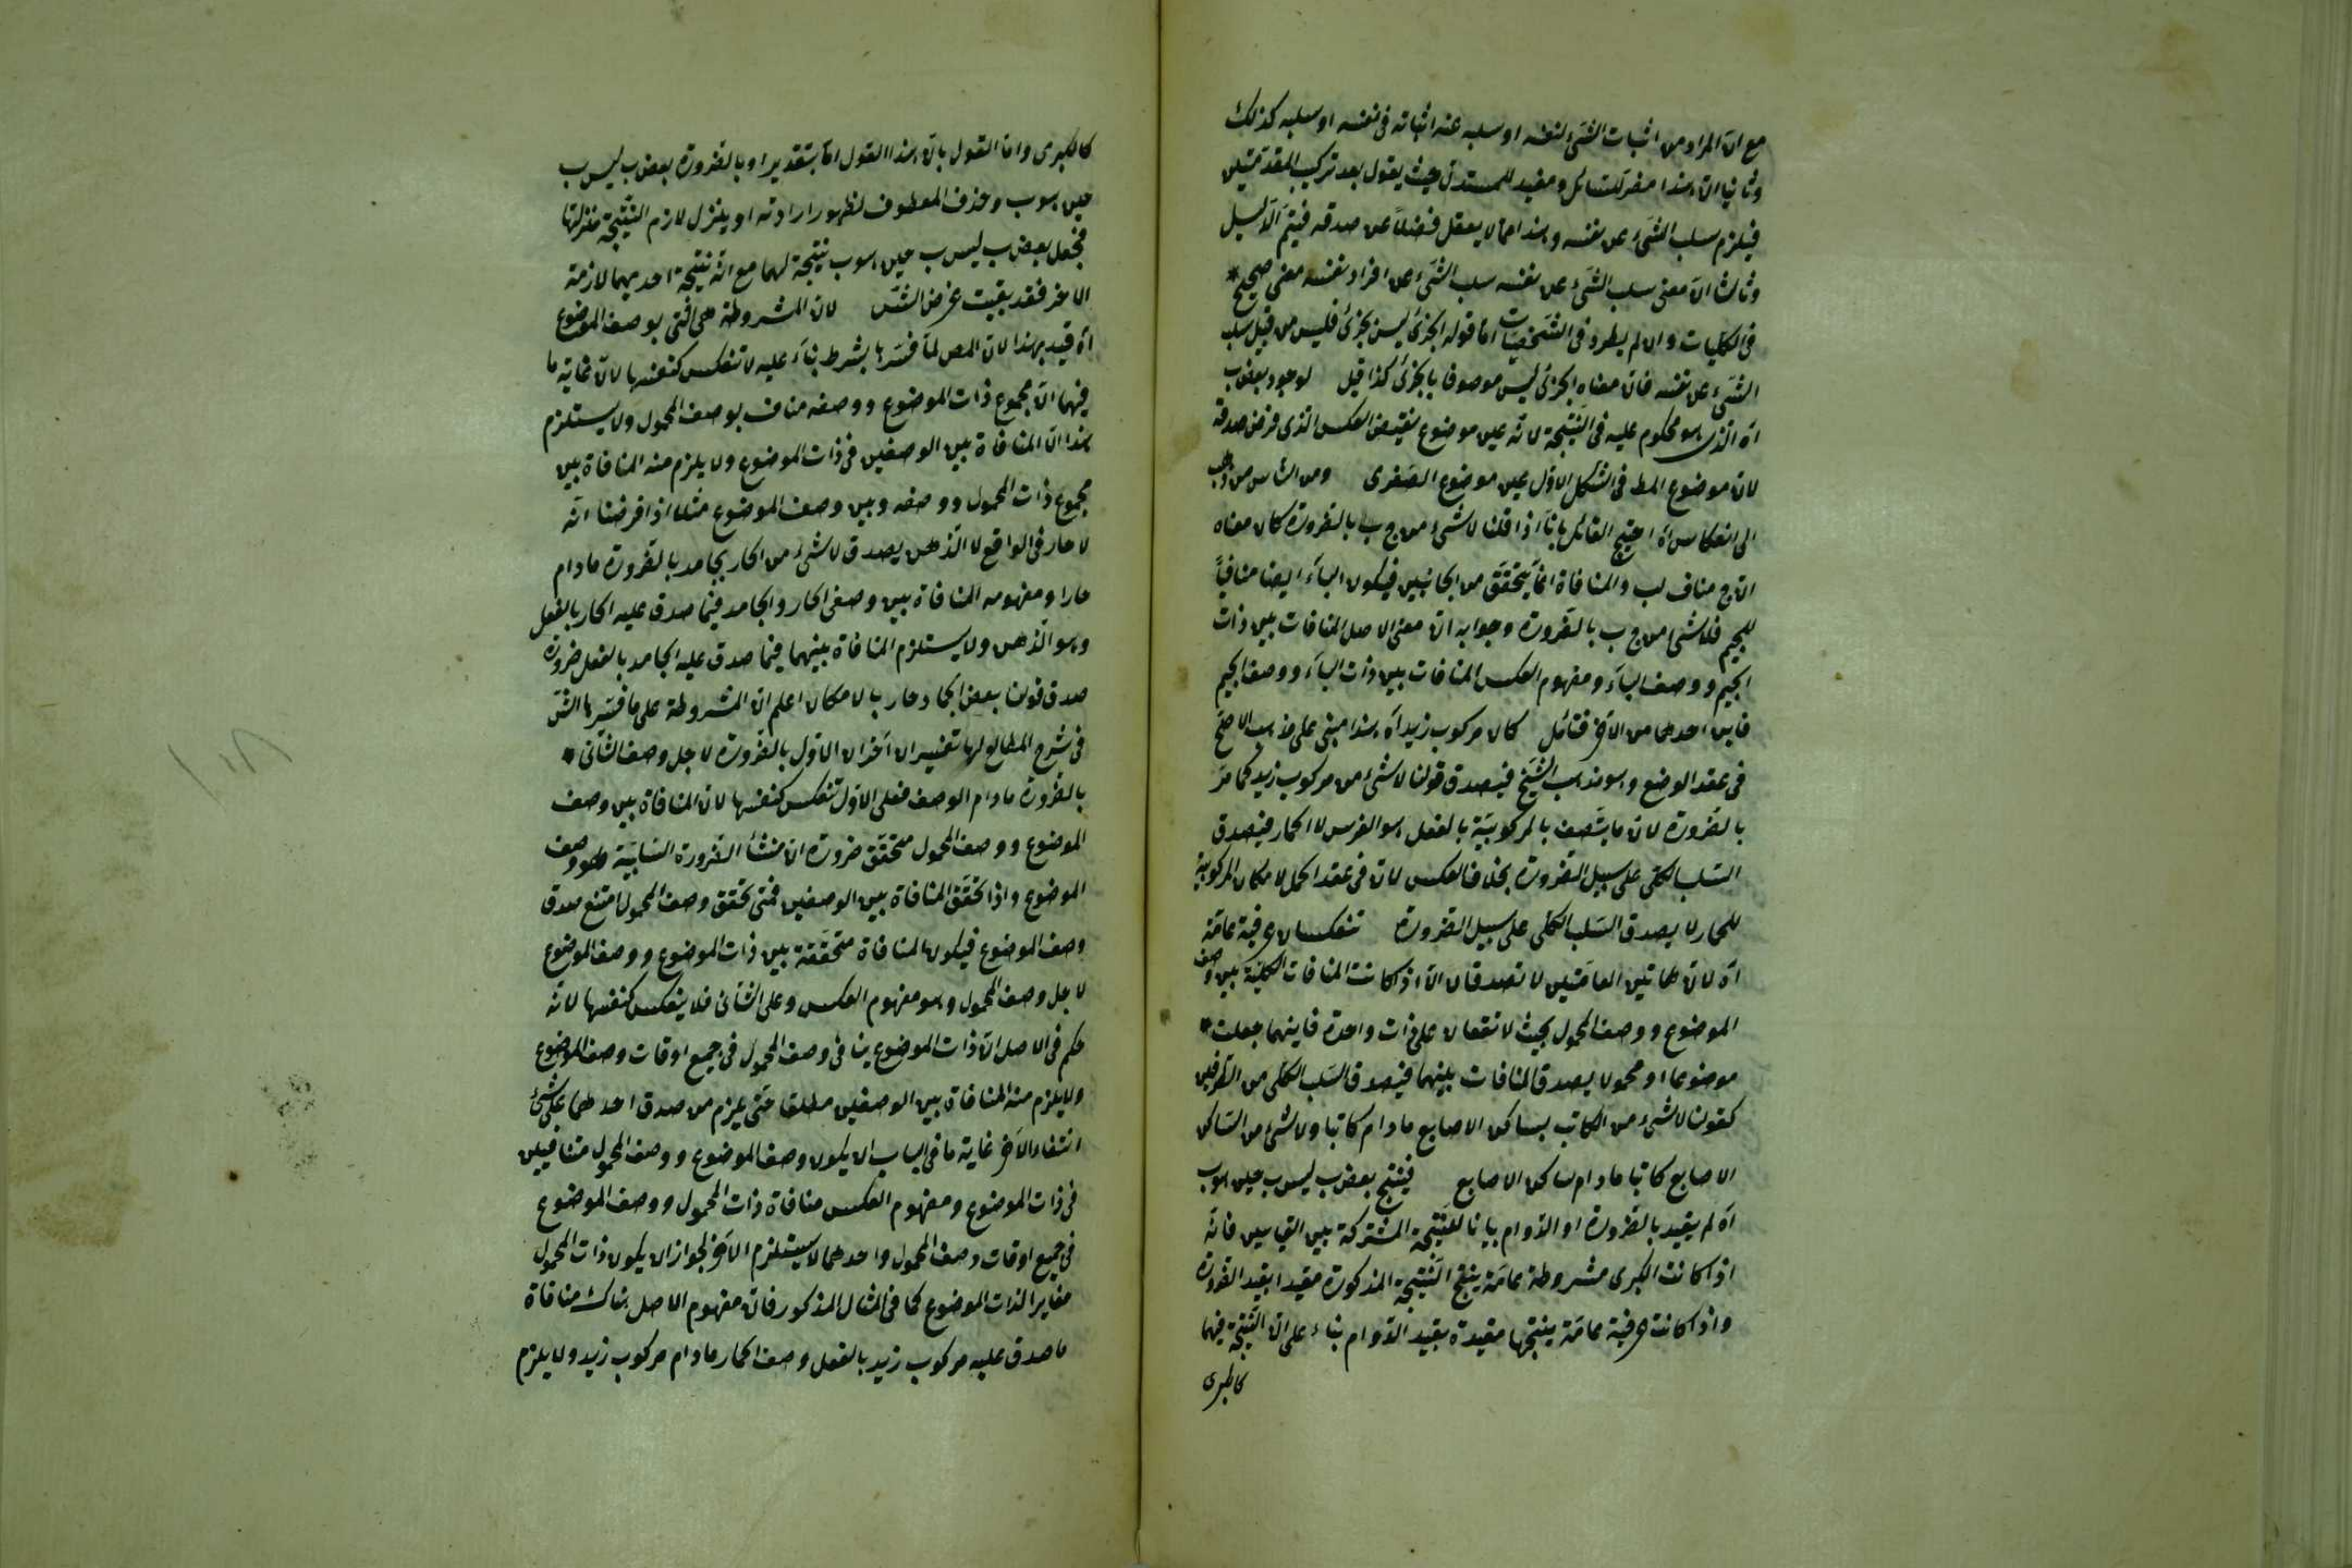 مع ان المراد من اثبات الشئ لنفسه او سلبه عنه اثباته فى نفسه او سلبه كذلك
وثانيا ان هذا مضر للسائل ومفيد للمستدل حيث يقول بعد تركيب المقدمتين
فيلزم سلب الشئ عن نفسه وهذا مما لا يعقل فضلا عن صدقه فيتم الدليل
وثالثا ان معنى سلب الشئ عن نفسه سلب الشئ عن افراد نفسه معنى صحيح
فى الكليات وان لم يطرد فى الشخصيات اما قوله الجزئ ليس بجزئ فليس من قبيل سلب
الشئ عن نفسه فان معناه الجزئ ليس موصوفا بالجزئ كذا قيل لوجود بعض ب
اه الذى هو محكوم عليه فى النتيجة لانه عين موضوع نقيض العكس الذى فرض صدقه
لان موضوع المط فى الشكل الاول عين موضوع الصغرى ومن الناس من ذهب
الى انعكاس اه احتج القائل بانا اذا قلنا لا شئ من ج ب بالضرورة كان معناه
ان ج مناف لب والمنافاة انما يتحقق من الجانبين فيكون الباء ايضا منافيا
للجيم فلا شئ من ج ب بالضرورة وجوابه ان معنى الاصل المنافات بين ذات
الجيم ووصف الباء ومفهوم العكس المنافات بين ذات الباء ووصف الجيم
فاين احدهما من الآخر فتأمل كان مركوب زيد اه هذا مبنى على مذهب الاصح
فى عقد الوضع وهو مذهب الشيخ فيصدق قولنا لا شئ من مركوب زيد كما مر
بالضرورة لان ما يتصف بالمركوبية بالفعل هو الفرس لا الحمار فيصدق
السلب الكلى على سبيل الضرورة بخلاف العكس لان فى عقد الحمل لامكان المركوبية
للحمار لا يصدق السلب الكلى على سبيل الضرورة تنعكسان عرفية عامة
اه لان هاتين العامتين لا تصدقان الا اذا كانت المنافات الكلية بين وصف
الموضوع ووصف المحمول بحيث لا تقعان على ذات واحدة فاينهما جعلت
موضوعا او محمولا يصدق المنافات بينهما فيصدق السلب الكلى من الطرفين
كقولنا لا شئ من الكاتب بساكن الاصابع ما دام كاتبا ولا شئ من الساكن
الاصابع كاتبا ما دام ساكن الاصابع فينتج بعض ب ليس ب حين هو ب
اه لم يقيد بالضرورة او الدوام بيانا للنتيجة المشتركة بين القياسين فانه
اذا كانت الكبرى مشروطة عامة ينتج النتيجة المذكورة مقيدا بقيد الضرورة
واذا كانت عرفية عامة ينتجها مقيدة بقيد الدوام بناء على ان النتيجة فيهما
كالكبرى
كالكبرى واما القول بان هذا القول اما بتقدير او بالضرورة بعض ب ليس ب
حين هو ب وحذف المعطوف لظهور ارادته او ينزل لازم النتيجة منزلتها
فجعل بعض ب ليس ب حين هو ب نتيجة لهما مع انه نتيجة احديهما لازمة
الاخر فقد بقيت غرض الش لان المشروطة هى التى بوصف الموضوع
اه قيد بهذا لان المص لما فسرها بشرط بناء عليه لا تنعكس كنفسها لان غاية ما
فيهما ان مجموع ذات الموضوع ووصفه مناف بوصف المحمول ولا يستلزم
هذا ان المنافاة بين الوصفين فى ذات الموضوع ولا يلزم منه المنافاة بين
مجموع ذات المحمول ووصفه وبين وصف الموضوع مثلا اذا فرضنا انه
لا حار فى الواقع لا الدهن يصدق لا شئ من الحار بجامد بالضرورة ما دام
حارا ومفهومه المنافاة بين وصفى الحار والجامد فيما صدق عليه الحار بالفعل
وهو الدهن ولا يستلزم المنافاة بينهما فيما صدق عليه الجامد بالفعل ضرورة
صدق قولنا بعض الجامد حار بالامكان اعلم ان المشروطة على ما فسرها الش
فى شرح المطالع لها تفسيران آخران الاول بالضرورة لاجل وصف الثانى
بالضرورة ما دام الوصف فعلى الاول تنعكس كنفسها لان المنافاة بين وصف
الموضوع ووصف المحمول متحقق ضرورة ان منشأ الضرورة السابية هو وصف
الموضوع واذا تحقق المنافاة بين الوصفين فمتى تحقق وصف المحمول امتنع صدق
وصف الموضوع فيكون المنافاة متحققة بين ذات الموضوع ووصف الموضوع
لاجل وصف المحمول وهو مفهوم العكس وعلى الثانى فلا ينعكس كنفسها لانه
حكم فى الاصل ان ذات الموضوع ينافى وصف المحمول فى جميع اوقات وصف الموضوع
ولا يلزم منه المنافاة بين الوصفين مطلقا حتى يلزم من صدق احدهما على شئ
انتفاء الآخر غاية ما فى الباب ان يكون وصف الموضوع ووصف المحمول متنافيين
فى ذات الموضوع ومفهوم العكس منافاة ذات المحمول ووصف الموضوع
فى جميع اوقات وصف المحمول واحدهما لا يستلزم الآخر لجواز ان يكون ذات المحمول
مغايرا لذات الموضوع كما فى المثال المذكور فان مفهوم الاصل هناك منافاة
ما صدق عليه مركوب زيد بالفعل وصف الحمار ما دام مركوب زيد ولا يلزم